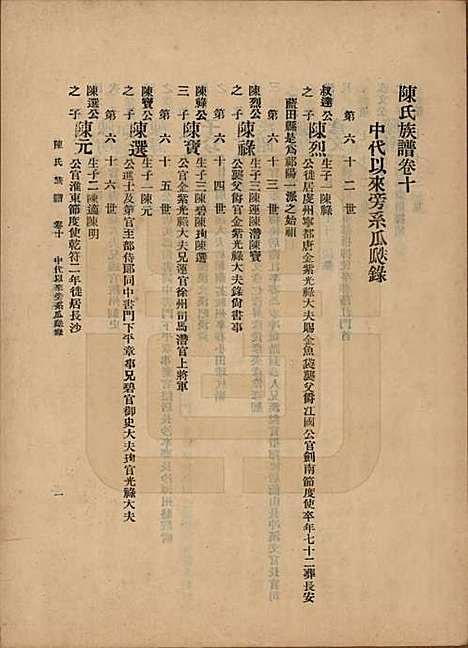 陳氏族譜卷十
中代以來旁系瓜瓞錄
第六十二世
叔達公之子陳烈
生子一陳祿
公徙居虔州寧都唐金紫光祿大夫賜金魚袋襲父爵江國公官劍南節度使卒年七十二葬長安
藍田縣是為祁陽一派之始祖
第六十三世
陳烈公之子陳祿
生子三陳運陳潛陳寶
公襲父爵官金紫光祿大夫錄尙書事
第六十四世
陳祿公三子陳寶
生子三陳碧陳珣陳選
公官金紫光祿大夫兄運官徐州司馬潛官上將軍
第六十五世
陳寶公之子陳選
生子一陳元
公進士及第官工部侍郎同中書門下平章事兄碧官御史大夫珣官光祿大夫
第六十六世
陳選公之子陳元
生子二陳適陳明
公官淮東節度使乾符二年徙居長沙
陳氏族譜 卷十 中代以來旁系瓜瓞錄
一